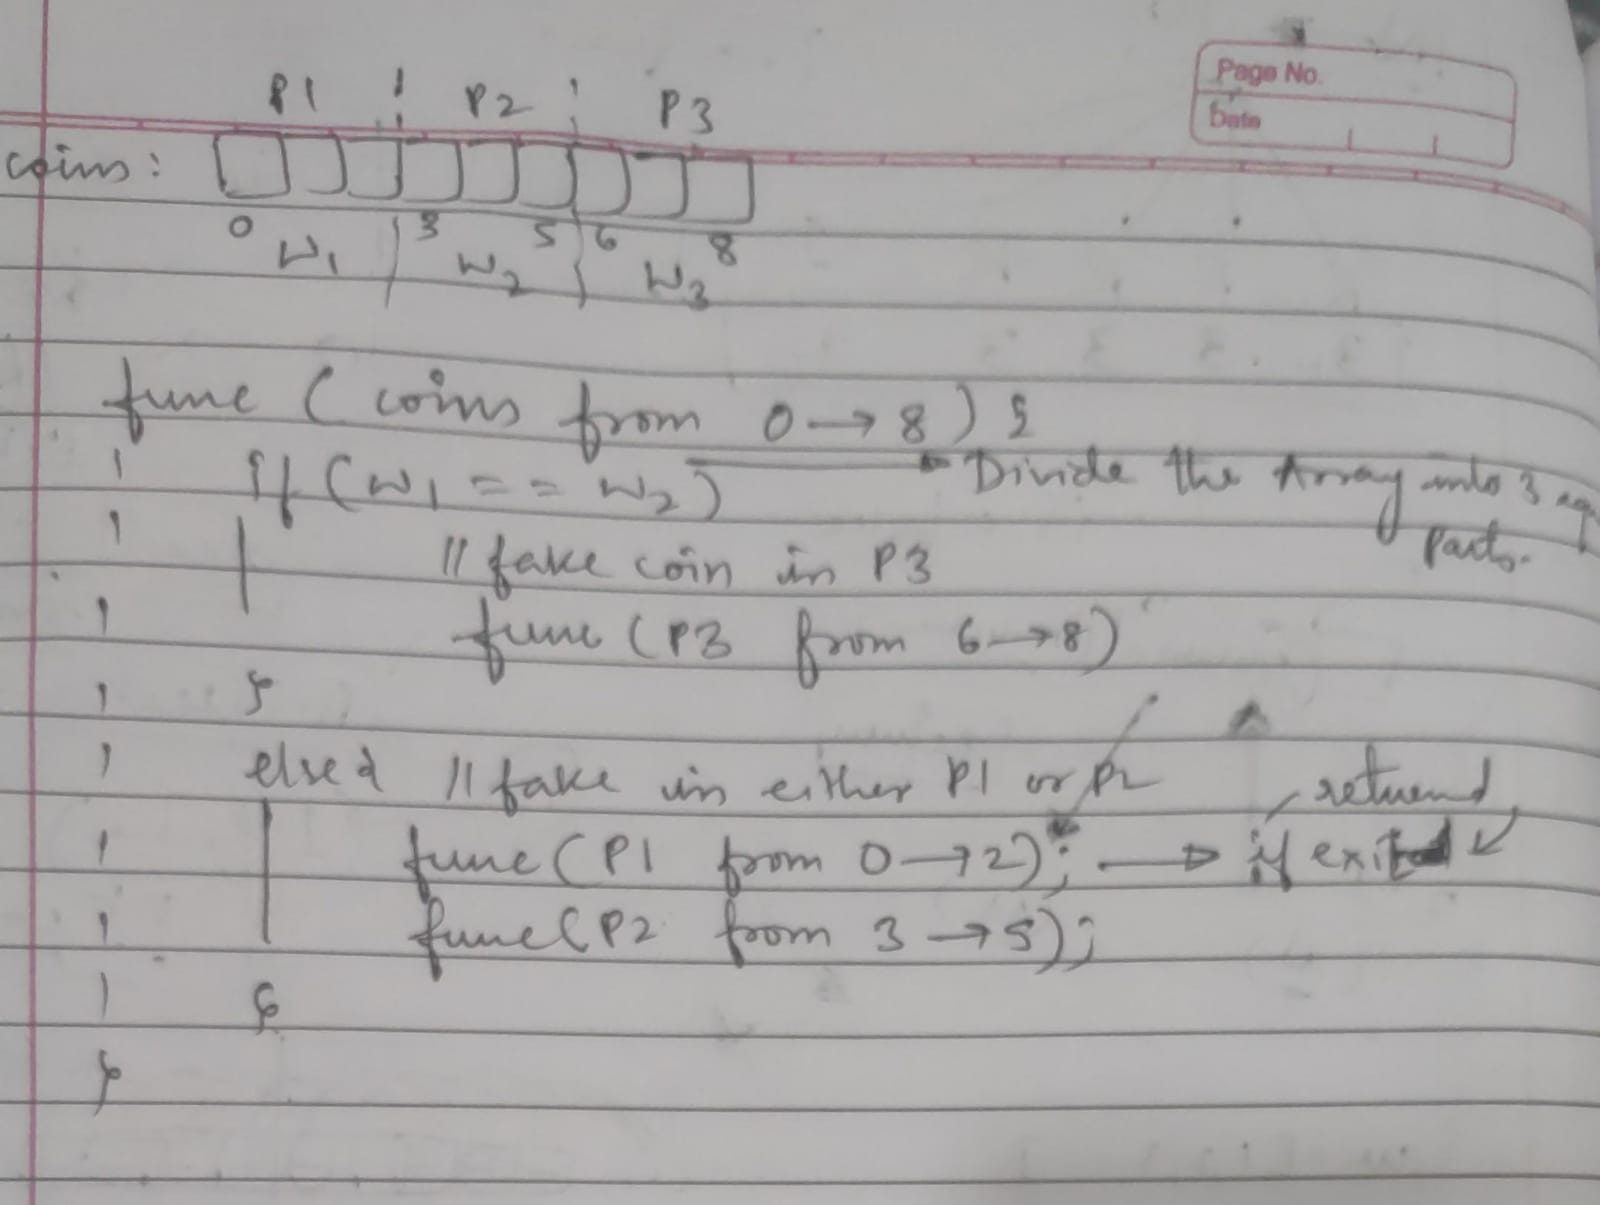 Page No.
Date
P1 P2 P3
coins:
0 3 5 6 8
W1 W2 W3
func ( coins from 0→8 ) {
if (W1 == W2) Divide the Array into 3 eq
Parts.
// fake coin in P3
func (P3 from 6→8)
}
else { // fake in either P1 or P2
returned
func (P1 from 0→2); → if
func (P2 from 3→5);
}
}